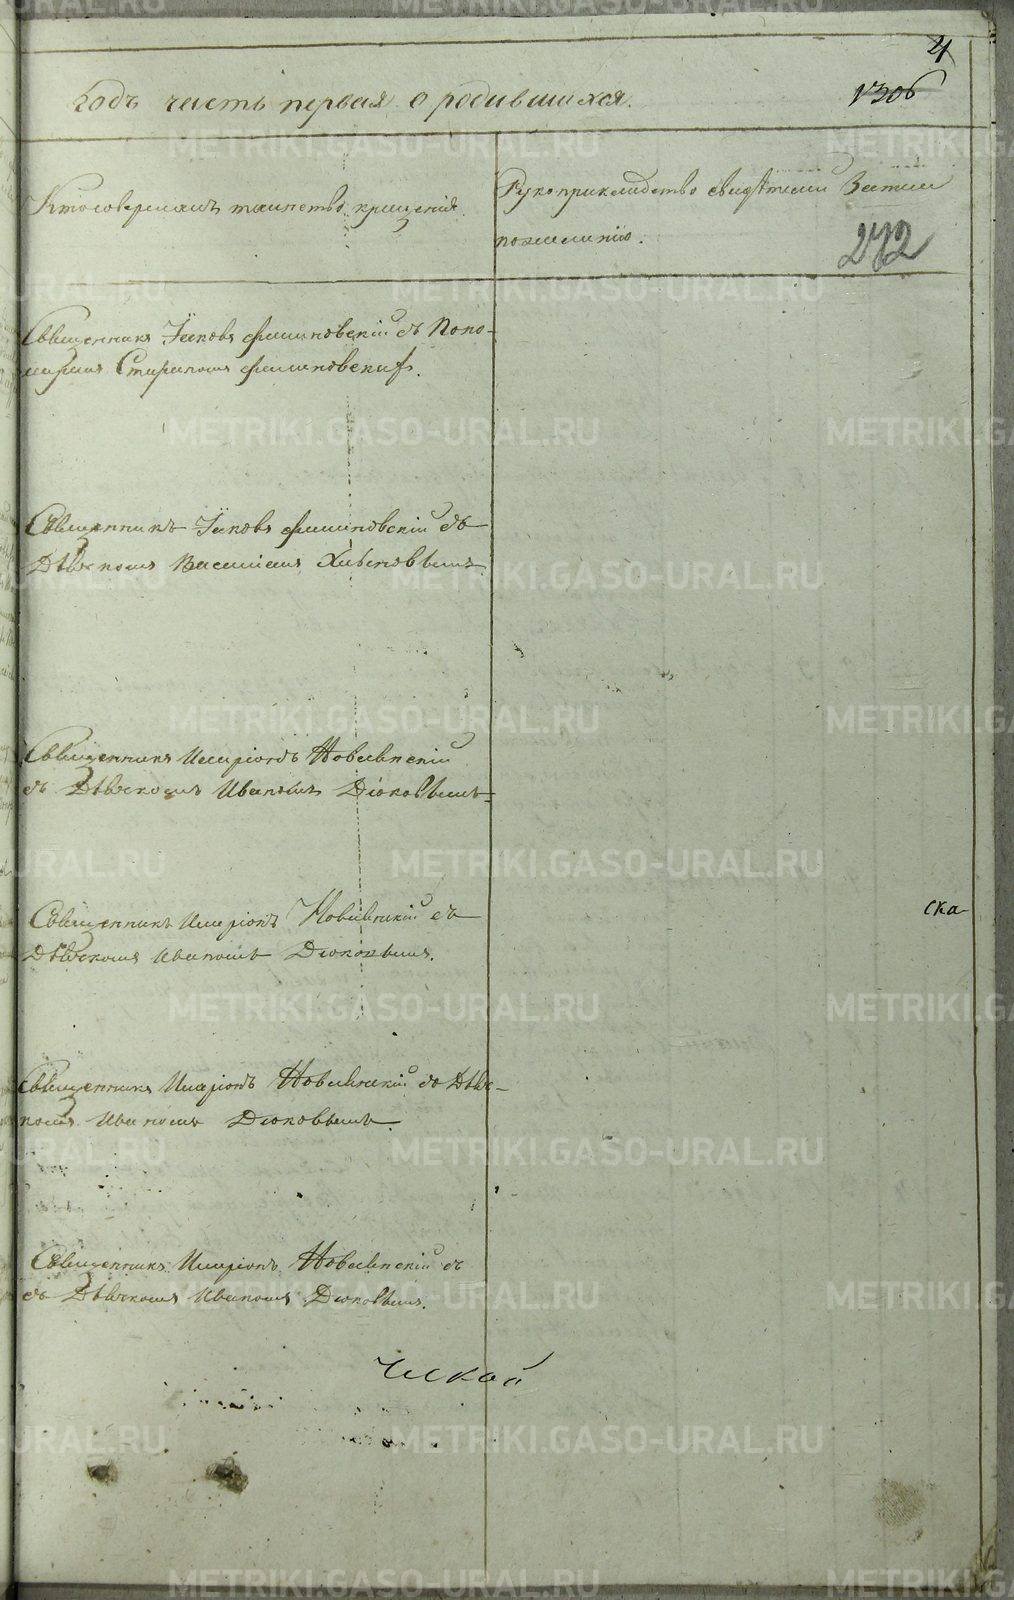 4
годъ часть первая о родившихся.
1306
Кто совершалъ таинство крещенія
Рукоприкладство свидѣтелей записи
по желанію.
272
Священникъ Іаковъ Филиповскій съ Поно-
маремъ Филиповскимъ.
Священникъ Іаковъ Филиповскій съ
Дьячкомъ Василіемъ
Священникъ Иларіонъ Новицкій
съ Дьячкомъ Иваномъ Дюковымъ
ска-
Священникъ Иларіонъ Новицкій съ
Дьячкомъ Иваномъ Дюковымъ.
Священникъ Иларіонъ Новицкій съ Дьяч-
комъ Иваномъ Дюковымъ.
Священникъ Иларіонъ Новицкій съ
съ Дьячкомъ Иваномъ Дюковымъ.
METRIKI.GASO-URAL.RU